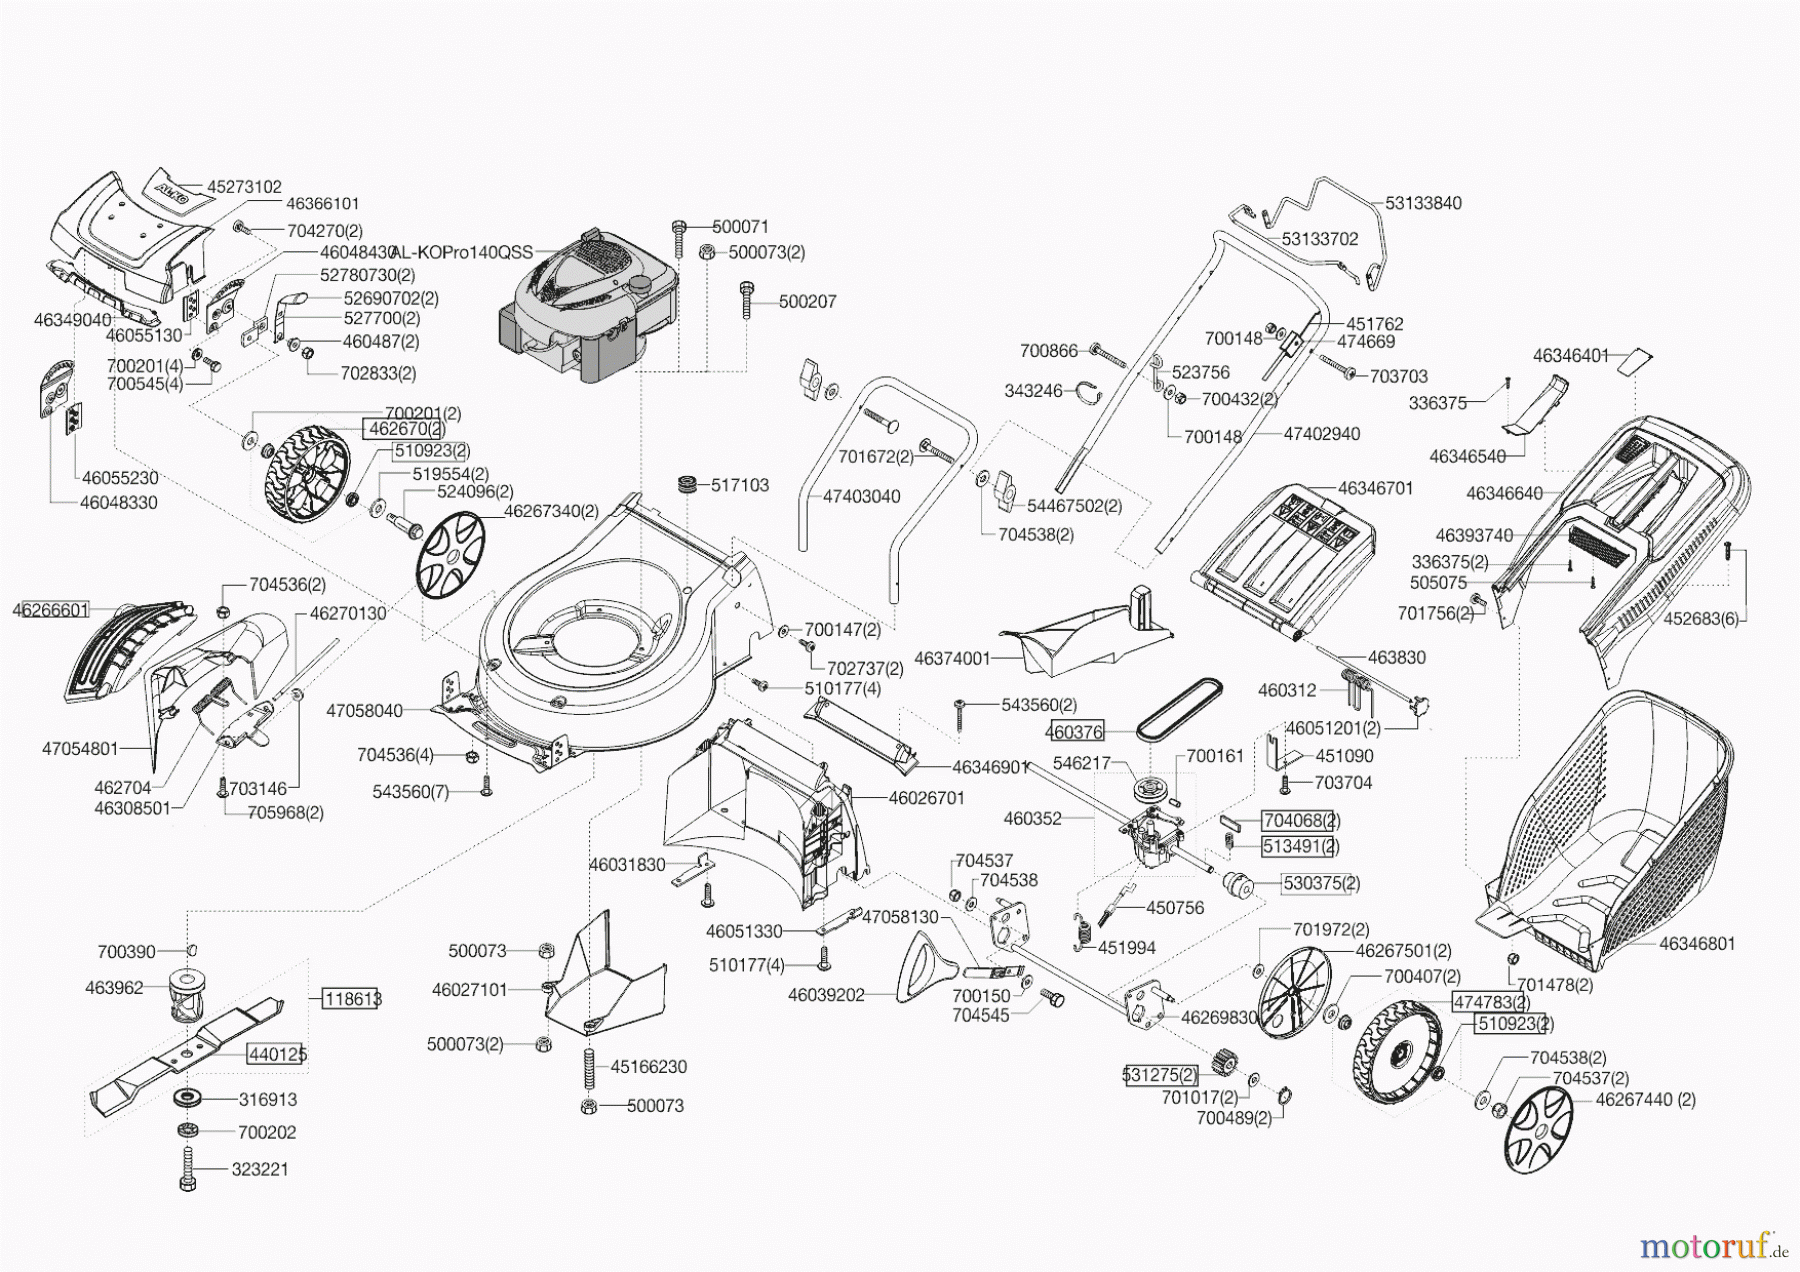 45273102
AL-KO
46366101
704270(2)
46048430
AL-KOPro140QSS
52780730(2)
52690702(2)
527700(2)
460487(2)
702833(2)
46349040
46055130
700201(4)
700545(4)
46055230
46048330
700201(2)
462670(2)
510923(2)
519554(2)
524096(2)
46267340(2)
500071
500073(2)
500207
517103
701672(2)
47403040
54467502(2)
704538(2)
53133840
53133702
451762
474669
700148
703703
700866
343246
523756
700432(2)
700148
47402940
46346401
336375
46346540
46346701
46346640
46393740
336375(2)
505075
701756(2)
452683(6)
46266601
704536(2)
46270130
47054801
462704
46308501
703146
705968(2)
47058040
704536(4)
543560(7)
700147(2)
702737(2)
510177(4)
543560(2)
46346901
46026701
46374001
460376
546217
700161
460352
463830
460312
46051201(2)
451090
703704
704068(2)
513491(2)
530375(2)
450756
451994
46031830
46051330
510177(4)
704537
704538
47058130
46039202
700150
704545
701972(2)
46267501(2)
700407(2)
474783(2)
510923(2)
46269830
531275(2)
701017(2)
700489(2)
704538(2)
704537(2)
46267440 (2)
46346801
701478(2)
700390
463962
118613
440125
316913
700202
323221
500073
46027101
500073(2)
45166230
500073
motoruf.de